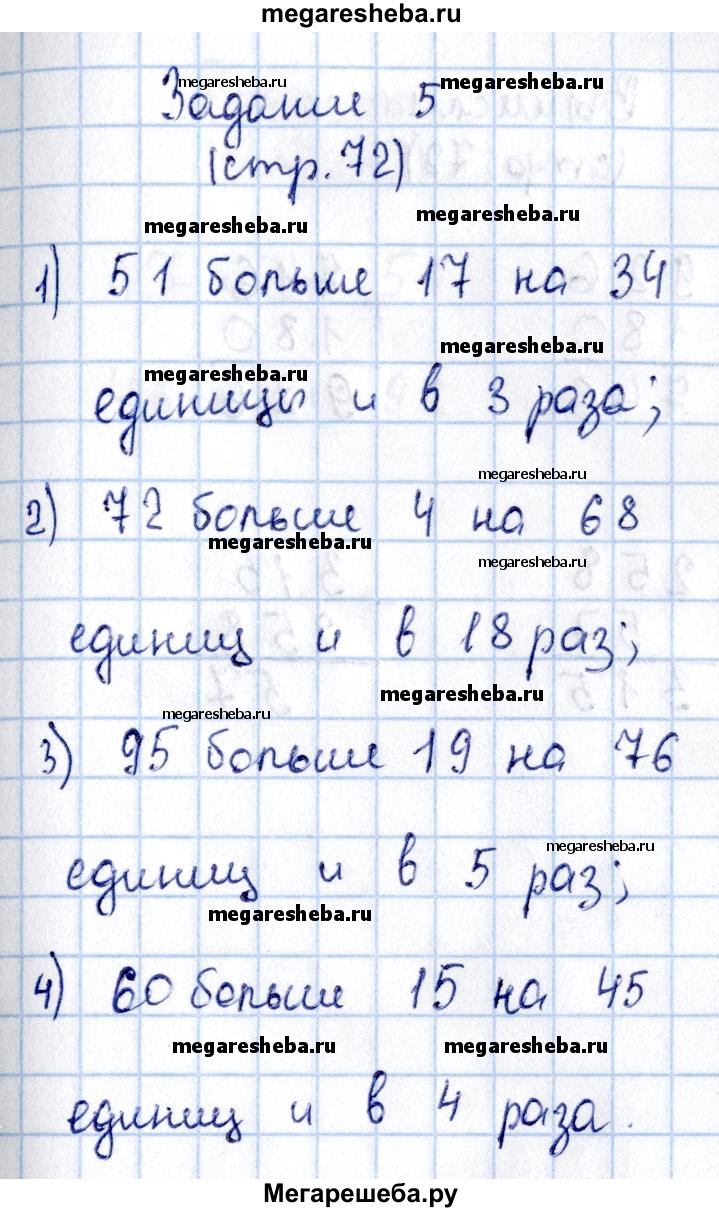 megaresheba.ru
Задание 5
megaresheba.ru megaresheba.ru
(стр. 72)
megaresheba.ru megaresheba.ru
1) 51 больше 17 на 34
megaresheba.ru megaresheba.ru
единицы и в 3 раза;
megaresheba.ru
2) 72 больше 4 на 68
megaresheba.ru
megaresheba.ru
единиц и в 18 раз;
megaresheba.ru
megaresheba.ru
3) 95 больше 19 на 76
megaresheba.ru
единиц и в 5 раз;
megaresheba.ru
4) 60 больше 15 на 45
megaresheba.ru megaresheba.ru
единиц и в 4 раза.
Мегарешеба.ру